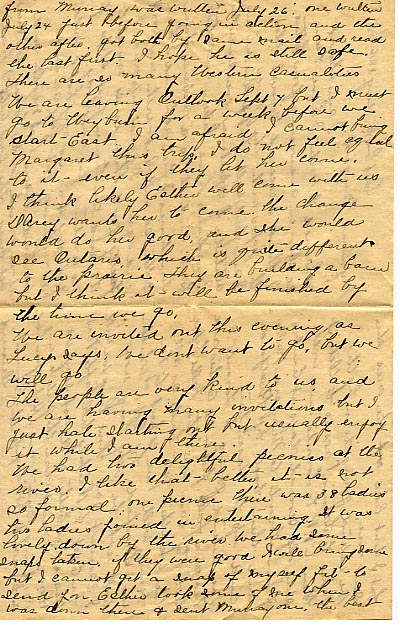 from Murray was written July 26: one written
July 24 just before going in action and the
other after, got both by same mail and read
the last first. I hope he is still safe,
there are so many Western casualties
We are leaving Outlook Sept 7 but I must
go to Weyburn for a week before we
start East. I am afraid I cannot bring
Margaret this trip, I do not feel equal
to it - even if they let her come.
I think likely Esther will come with us
D'Arcy wants her to come. the change
would do her good, and she would
see Ontario which is quite different
to the prairie they are building a barn
but I think it will be finished by
the time we go.
We are invited out this evening, as
Lucy says, we don't want to go, but we
will go
The people are very kind to us, and
we are having many invitations, but I
just hate starting out but usually enjoy
it while I am there.
We had two delightful picnics at the
river. I like that better it is not
so formal; one picnic there was 38 ladies
two ladies joined in entertaining. It was
lovely down by the river we had some
snaps taken, if they were good I will bring some
but I cannot get a snap of myself fit to
send for Esther took some of me when I
was down there & sent Murray one, the best